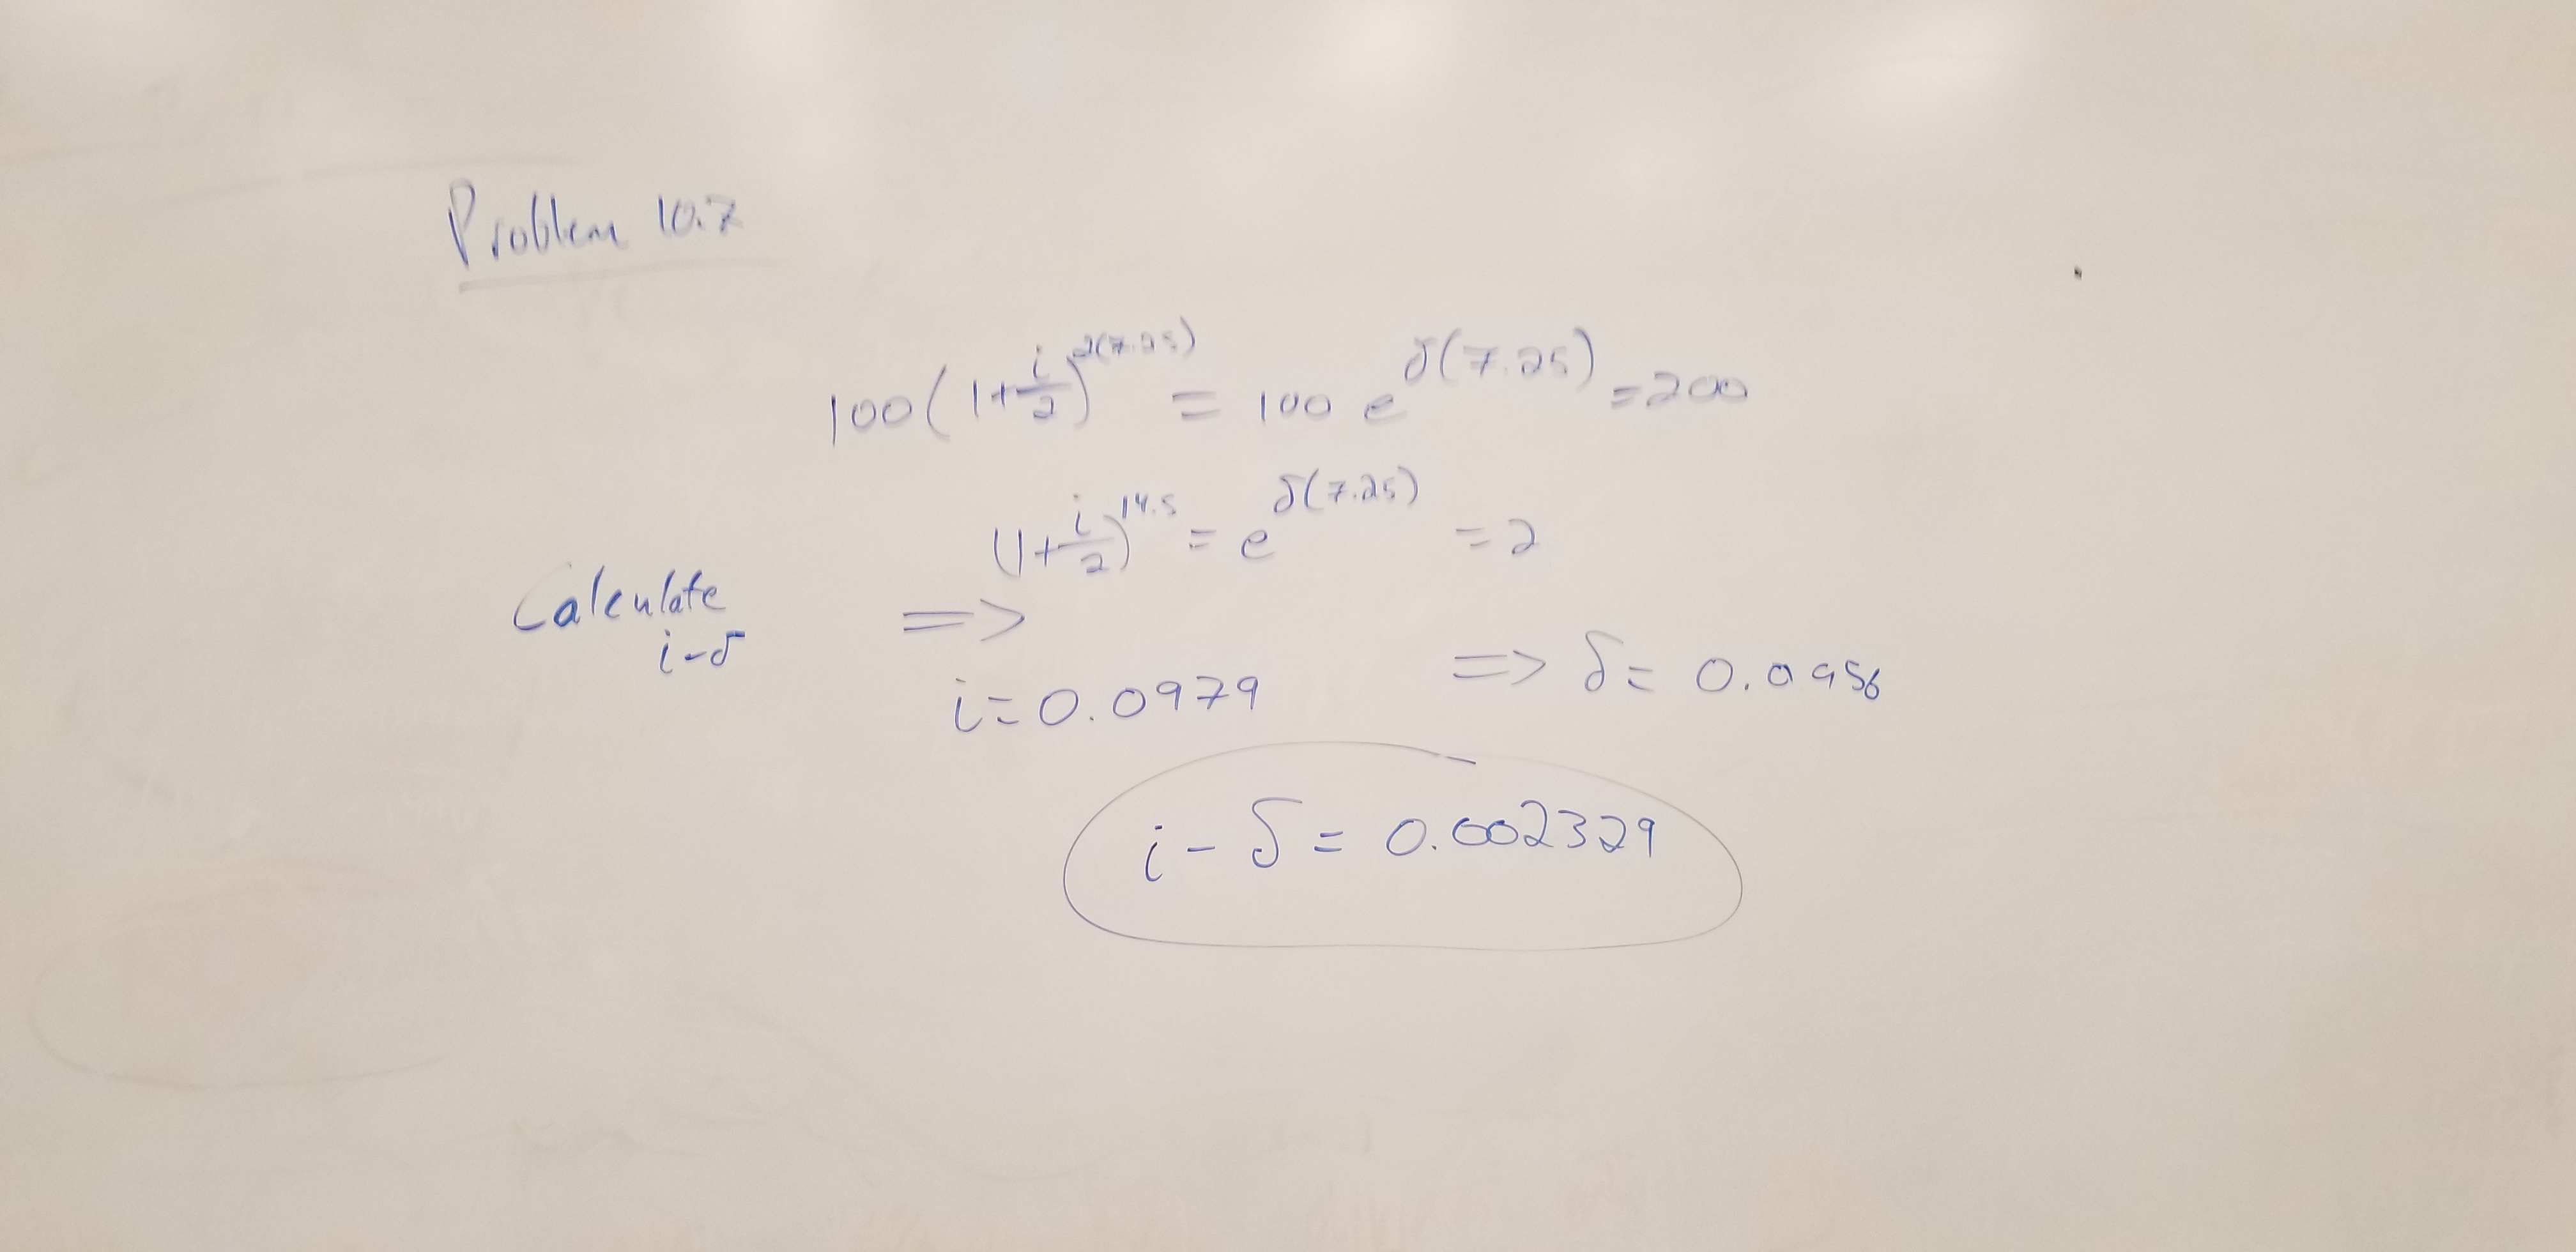 Problem 10.7
100(1+i/2)^2(7.25) = 100 e^δ(7.25) = 200
(1+i/2)^14.5 = e^δ(7.25) = 2
Calculate
i-δ
=>
i=0.0979
=> δ= 0.0956
i - δ = 0.002329